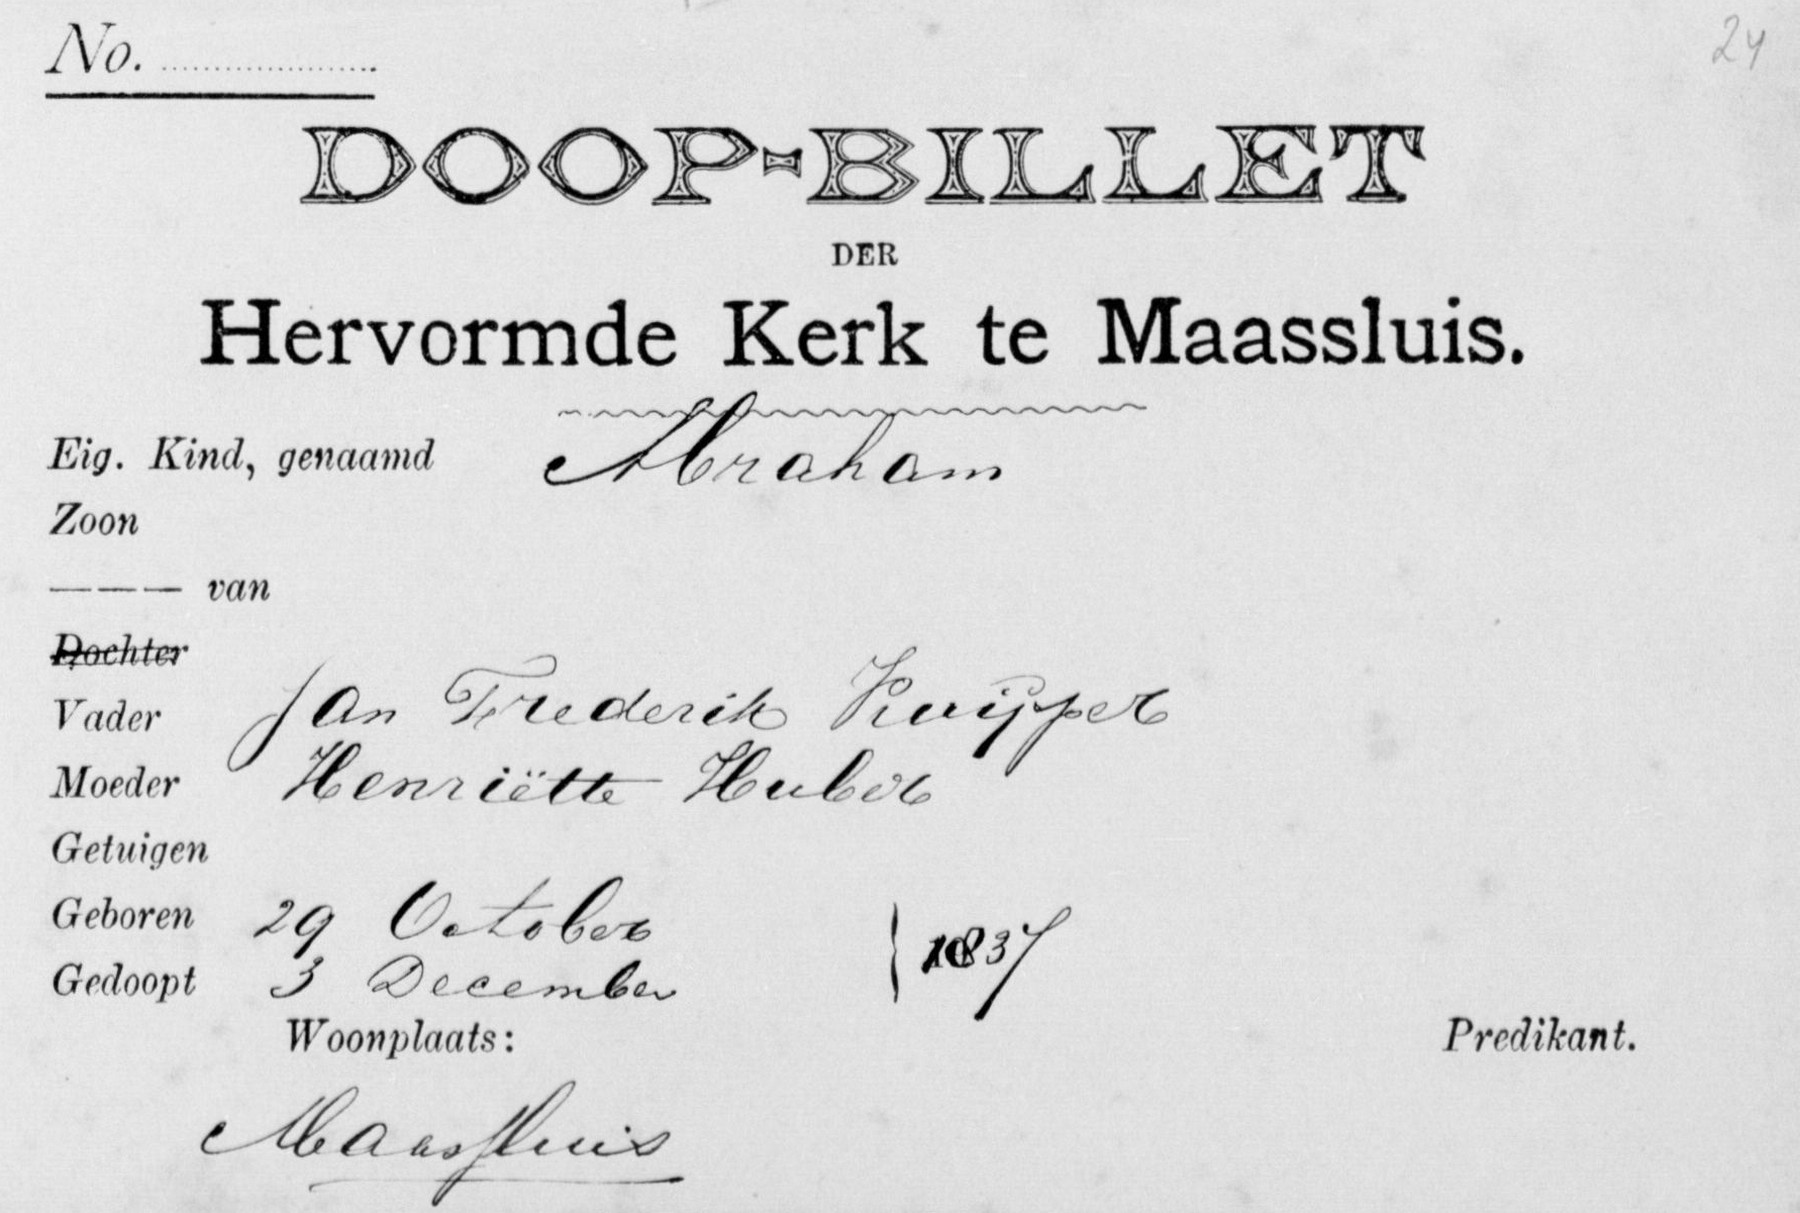 No. ....................
24
DOOP-BILLET
DER
Hervormde Kerk te Maassluis.
Eig. Kind, genaamd Abraham
Zoon
——— van
Dochter
Vader Jan Frederik Kuijper
Moeder Henriëtte Huber
Getuigen
Geboren 29 October
Gedoopt 3 December } 1837
Woonplaats:
Predikant.
Maassluis